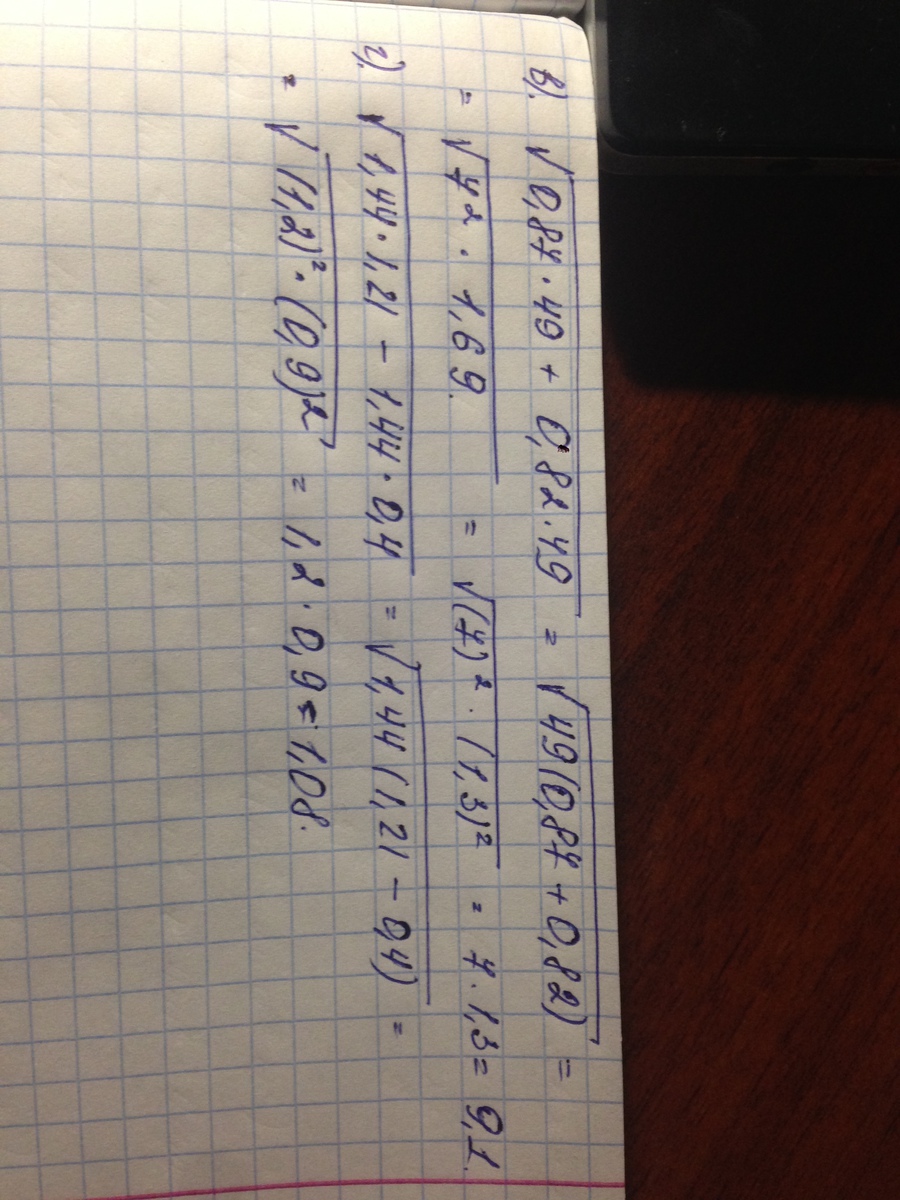 в). √0,87·49 + 0,82·49 = √49(0,87+0,82) =
= √7²·1,69 = √(7)²·(1,3)² = 7·1,3 = 9,1.
г). √1,44·1,21 - 1,44·0,4 = √1,44(1,21-0,4) =
= √(1,2)²·(0,9)² = 1,2·0,9 = 1,08.